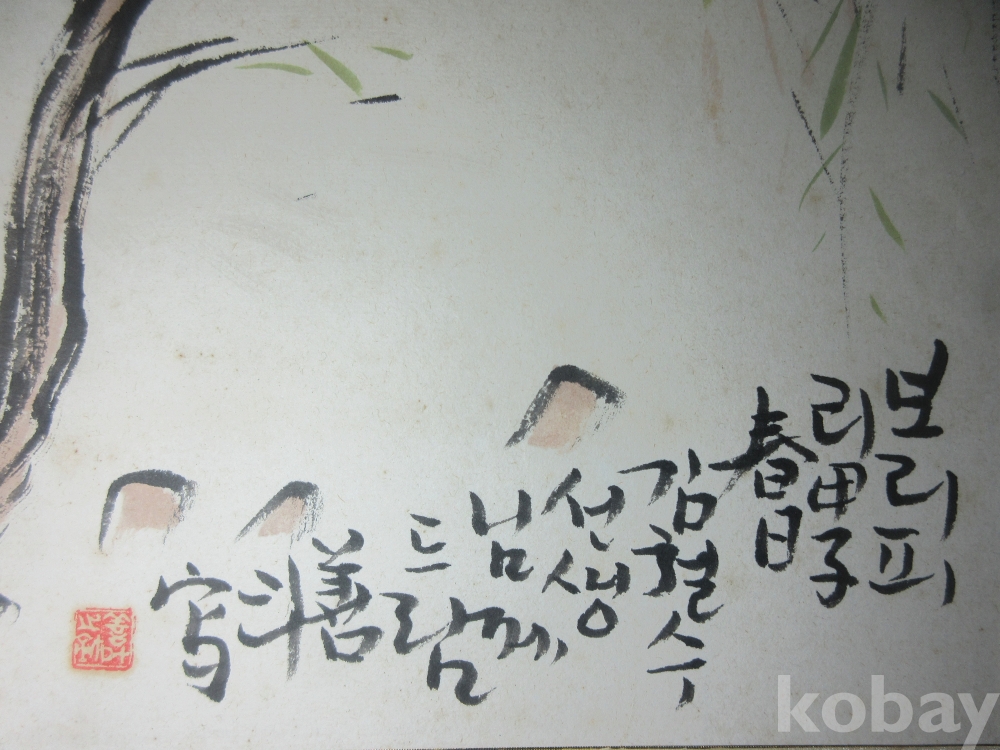 보리피
리甲子
春日
김철수
선생
님께
드람
善
斗
写
kobay